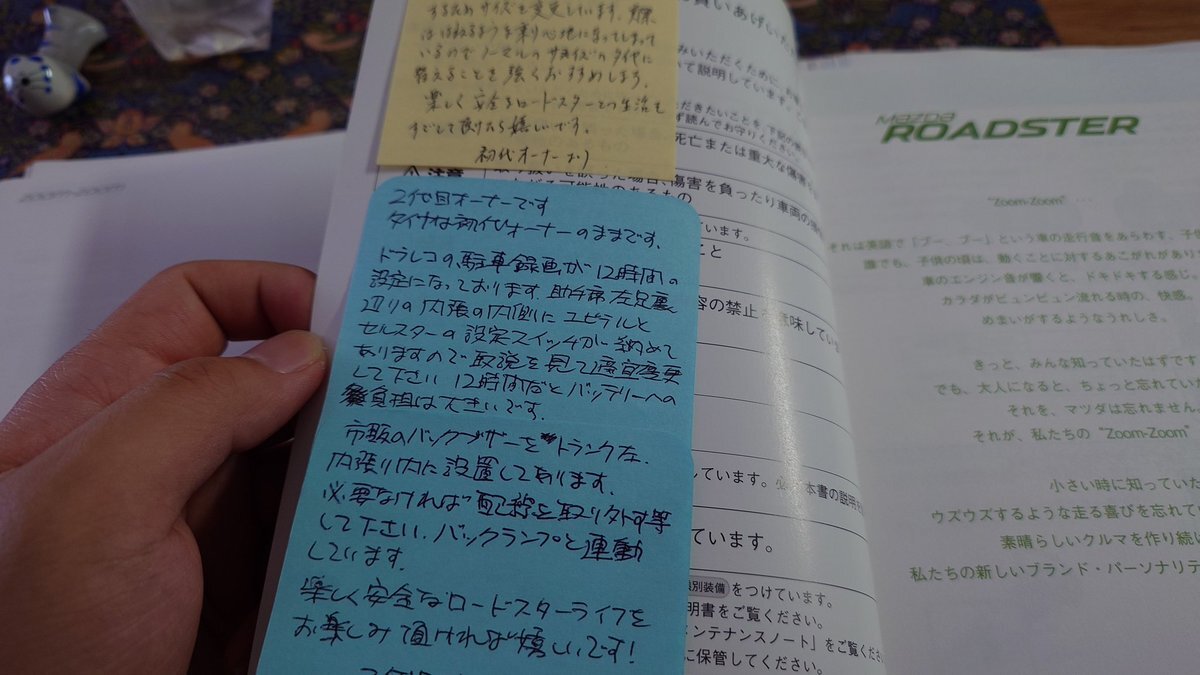 するためサイズを変更しています。
は
いるのでノーマルのサイズのタイヤに
替えることを強くおすすめします。
楽しく安全なロードスターとの生活を
すごして頂けたら嬉しいです。
初代オーナーより
2代目オーナーです
タイヤは初代オーナーのままです。
ドラレコの駐車録画が12時間の
設定になっております。助手席左足裏
辺りの内張の内側にユピテルと
セルスターの設定スイッチが納めて
ありますので取説を見て適宜変更
して下さい 12時間だとバッテリーへの
負担は大きいです。
市販のバックブザーをトランク左、
内張り内に設置してあります。
必要なければ配線を取り外す等
して下さい。バックランプと連動
しています。
楽しく安全なロードスターライフを
お楽しみ頂ければ嬉しいです!
買いあげいた
みいただくために
て説明しています。
ただきたいことを、下記の
ず読んでお守りください。
死亡または重大な傷害
注意
傷害を負ったり車両の
可能性のあるもの
います。
こと
容の禁止を意味してい
しています。必ず本書の説明
ています。
別装備 をつけています。
明書をご覧ください。
メンテナンスノート」をご覧くだ
に保管してください。
Mazda
ROADSTER
"Zoom-Zoom"…
それは英語で「ブー、ブー」という車の走行音をあらわす、子供
誰でも、子供の頃は、動くことに対するあこがれがあり
車のエンジン音が響くと、ドキドキする感じ
カラダがビュンビュン流れる時の、快感。
めまいがするようなうれしさ。
きっと、みんな知っていたはずです
でも、大人になると、ちょっと忘れてい
それを、マツダは忘れません
それが、私たちの "Zoom-Zoom"
小さい時に知っていた
ウズウズするような走る喜びを忘れてい
素晴らしいクルマを作り続け
私たちの新しいブランド・パーソナリテ